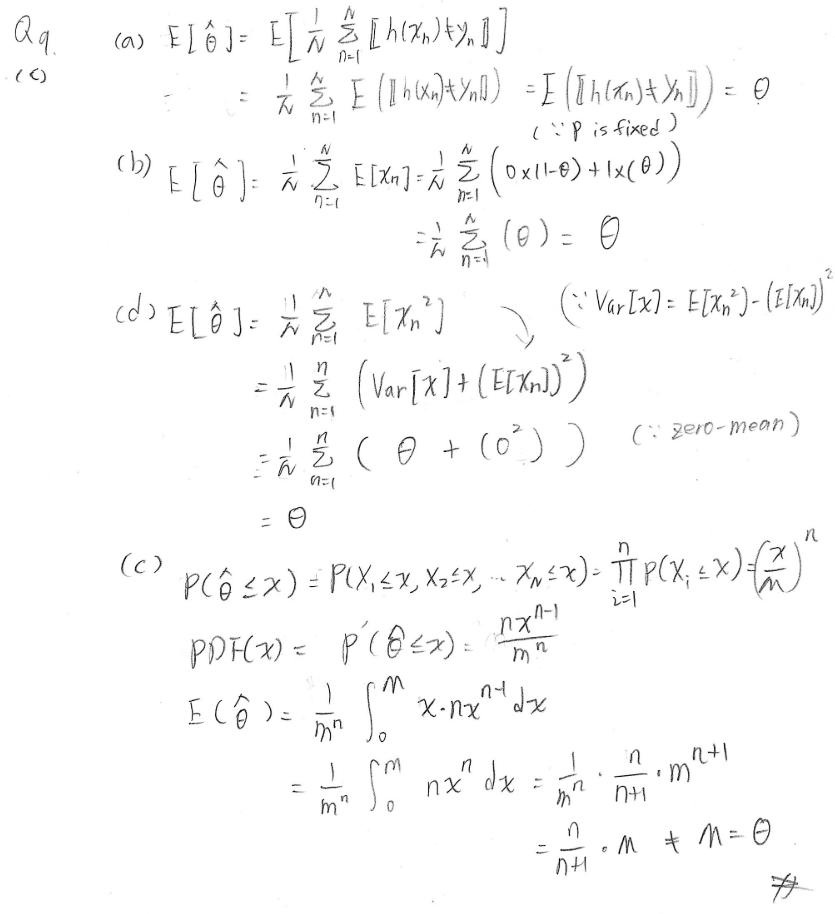 Q9. (a) E[θ̂] = E[1/N Σ_{n=1}^{N} ⟦h(x_n)≠y_n⟧]
(c) = 1/N Σ_{n=1}^{N} E(⟦h(x_n)≠y_n⟧) = E(⟦h(x_n)≠y_n⟧) = θ
(∵ P is fixed)
(b) E[θ̂] = 1/N Σ_{n=1}^{N} E[x_n] = 1/N Σ_{n=1}^{N} (0×(1-θ)+1×(θ))
= 1/N Σ_{n=1}^{N} (θ) = θ
(d) E[θ̂] = 1/N Σ_{n=1}^{N} E[x_n²] (∵ Var[x] = E[x_n²]-(E[x_n])²
= 1/N Σ_{n=1}^{n} (Var[x]+(E[x_n])²)
= 1/N Σ_{n=1}^{n} (θ + (0²)) (∵ zero-mean)
= θ
(c) P(θ̂≤x) = P(X₁≤x, X₂≤x, ... X_N≤x) = Π_{i=1}^{n} P(X_i≤x) = (x/m)^n
PDF(x) = P'(θ̂≤x) = nx^{n-1}/m^n
E(θ̂) = 1/m^n ∫_0^m x·nx^{n-1} dx
= 1/m^n ∫_0^m nx^n dx = 1/m^n · n/(n+1) · m^{n+1}
= n/(n+1) · M ≠ M = θ